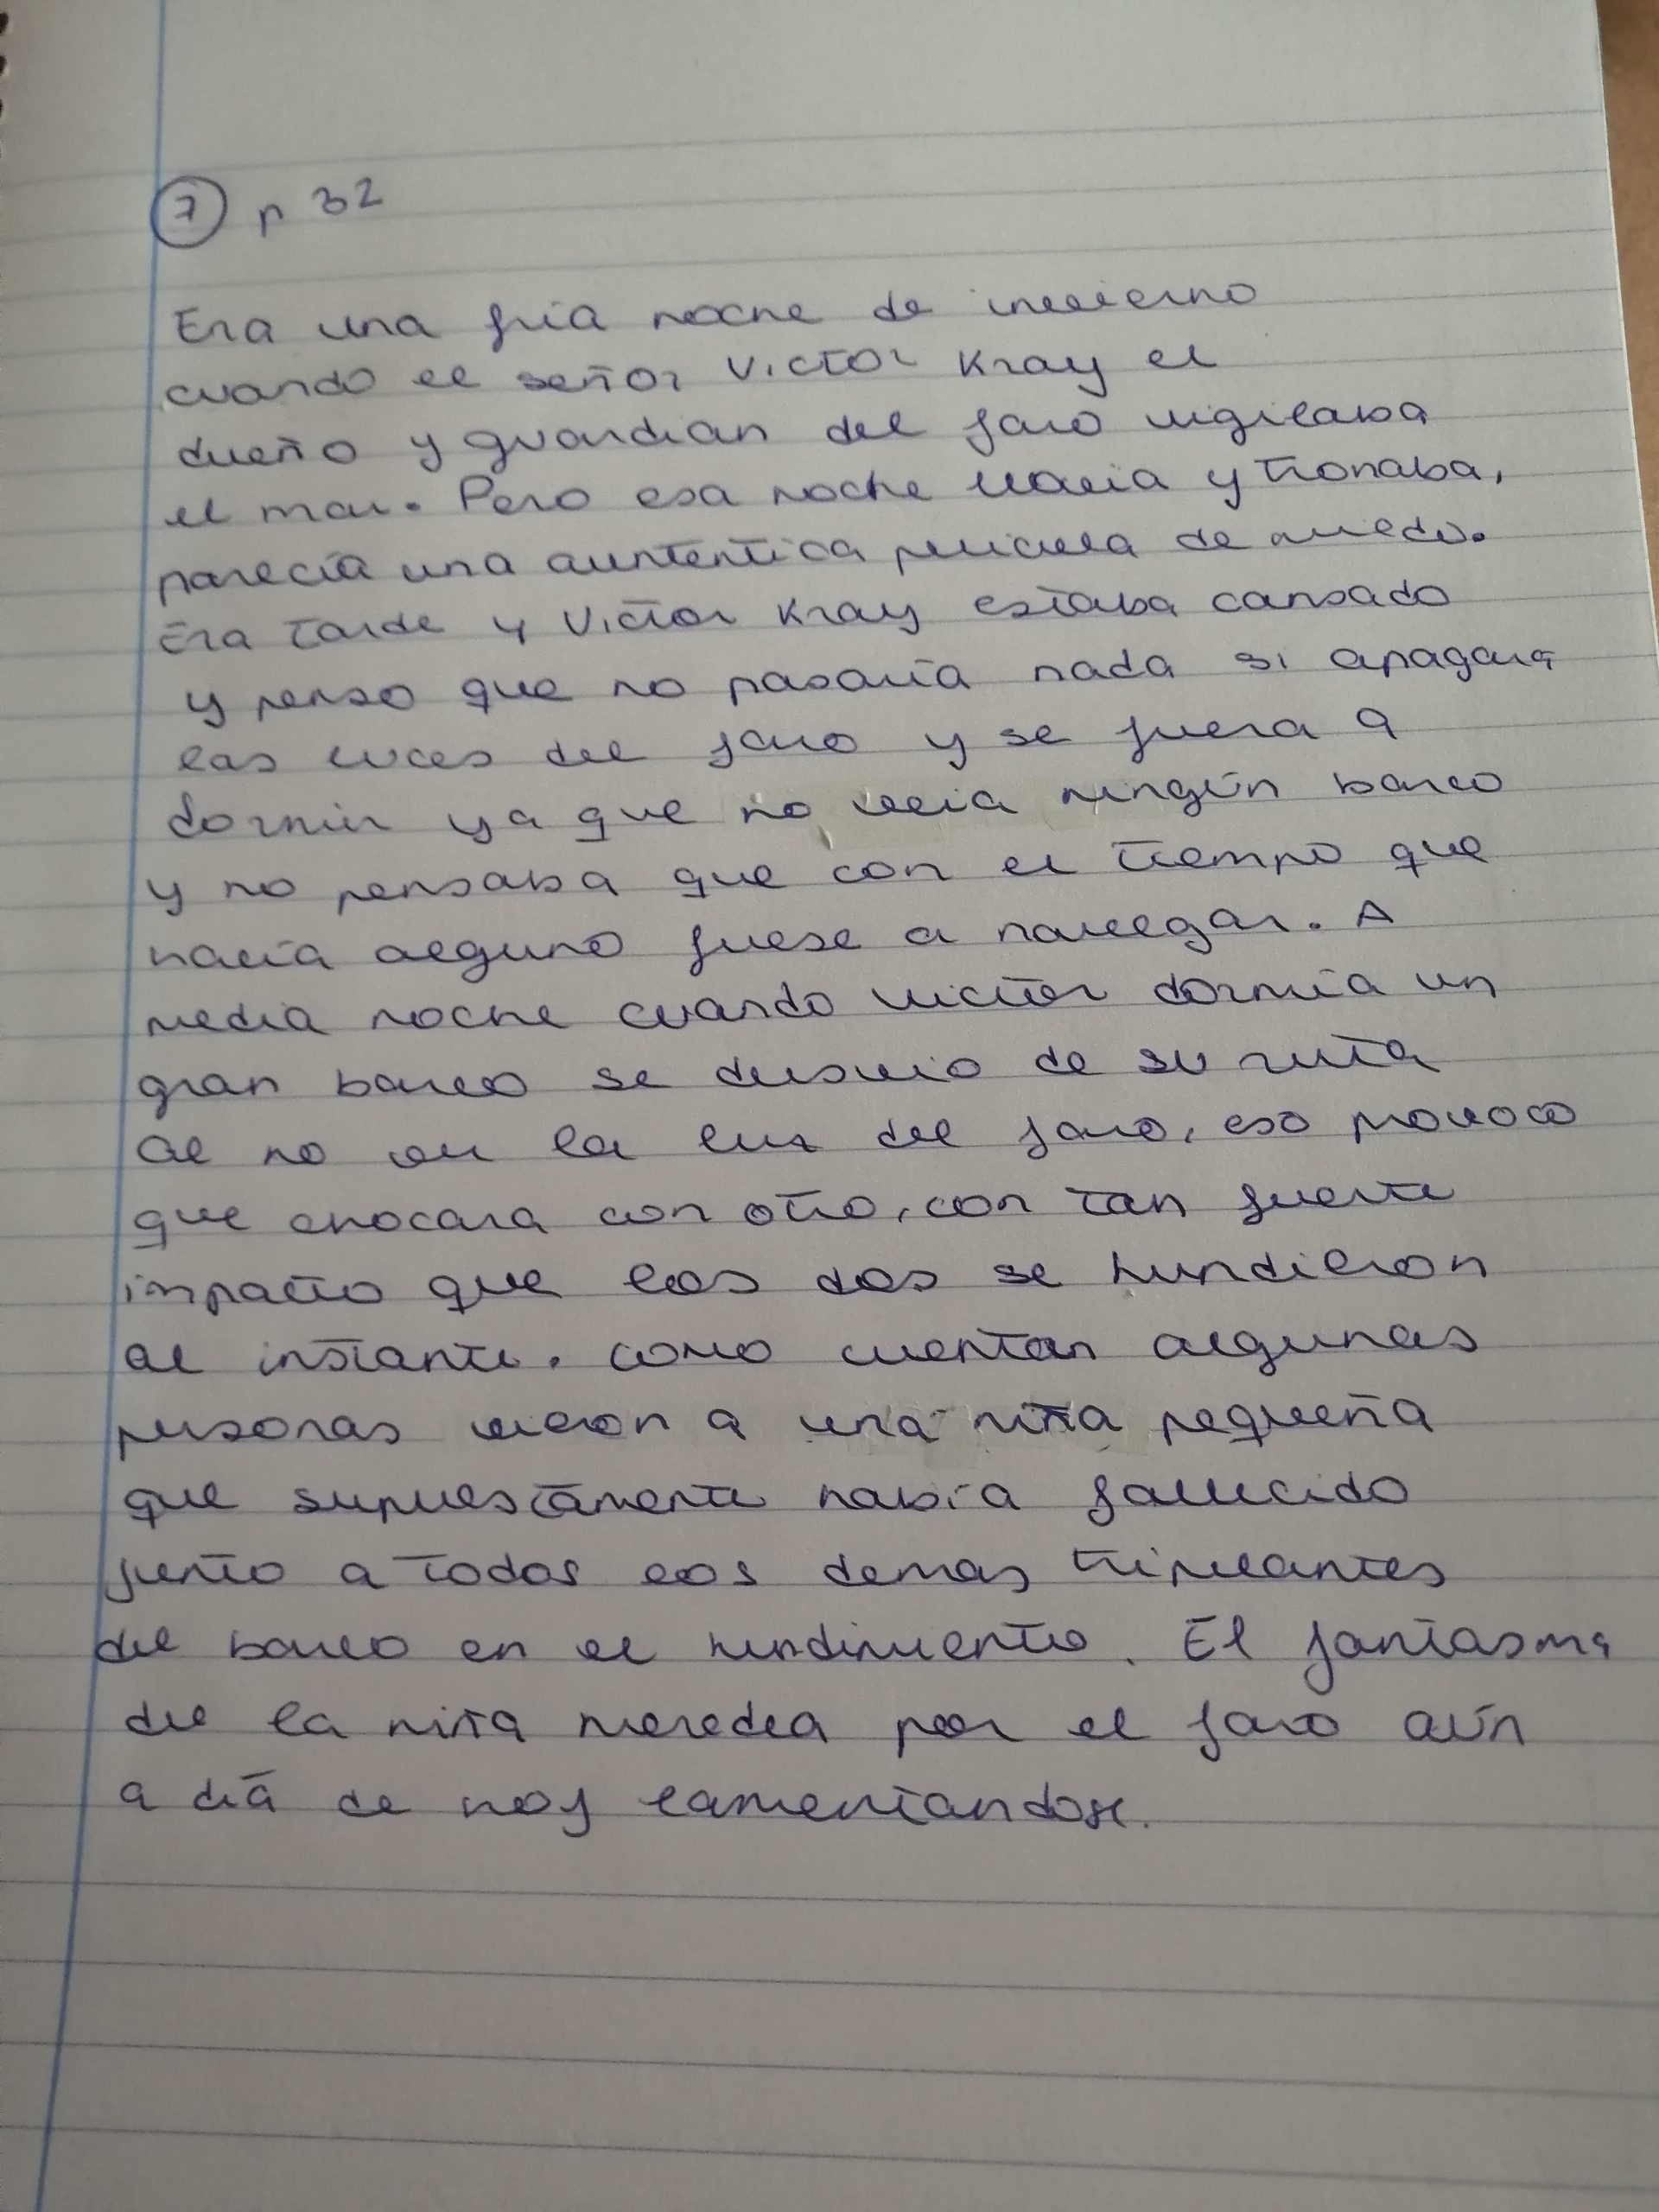 7 p 32
Era una fria noche de invierno
cuando el señor Victor Kray el
dueño y guardian del faro vigilaba
el mar. Pero esa noche llovia y tronaba,
parecía una auntentica pelicula de miedo.
Era tarde y Victor Kray estaba cansado
y penso que no pasaría nada si apagara
las luces del faro y se fuera a
dormir ya que no veia ningún barco
y no pensaba que con el tiempo que
hacía alguno fuese a navegar. A
media noche cuando victor dormía un
gran barco se desvio de su ruta
al no ver la luz del faro, eso provoco
que chocara con otro, con tan fuerte
impacto que los dos se hundieron
al instante. como cuentan algunas
personas vieron a una niña pequeña
que supuestamente había fallecido
junto a todos los demas tripulantes
del barco en el hundimiento. El fantasma
de la niña merodea por el faro aún
a día de hoy lamentandose.